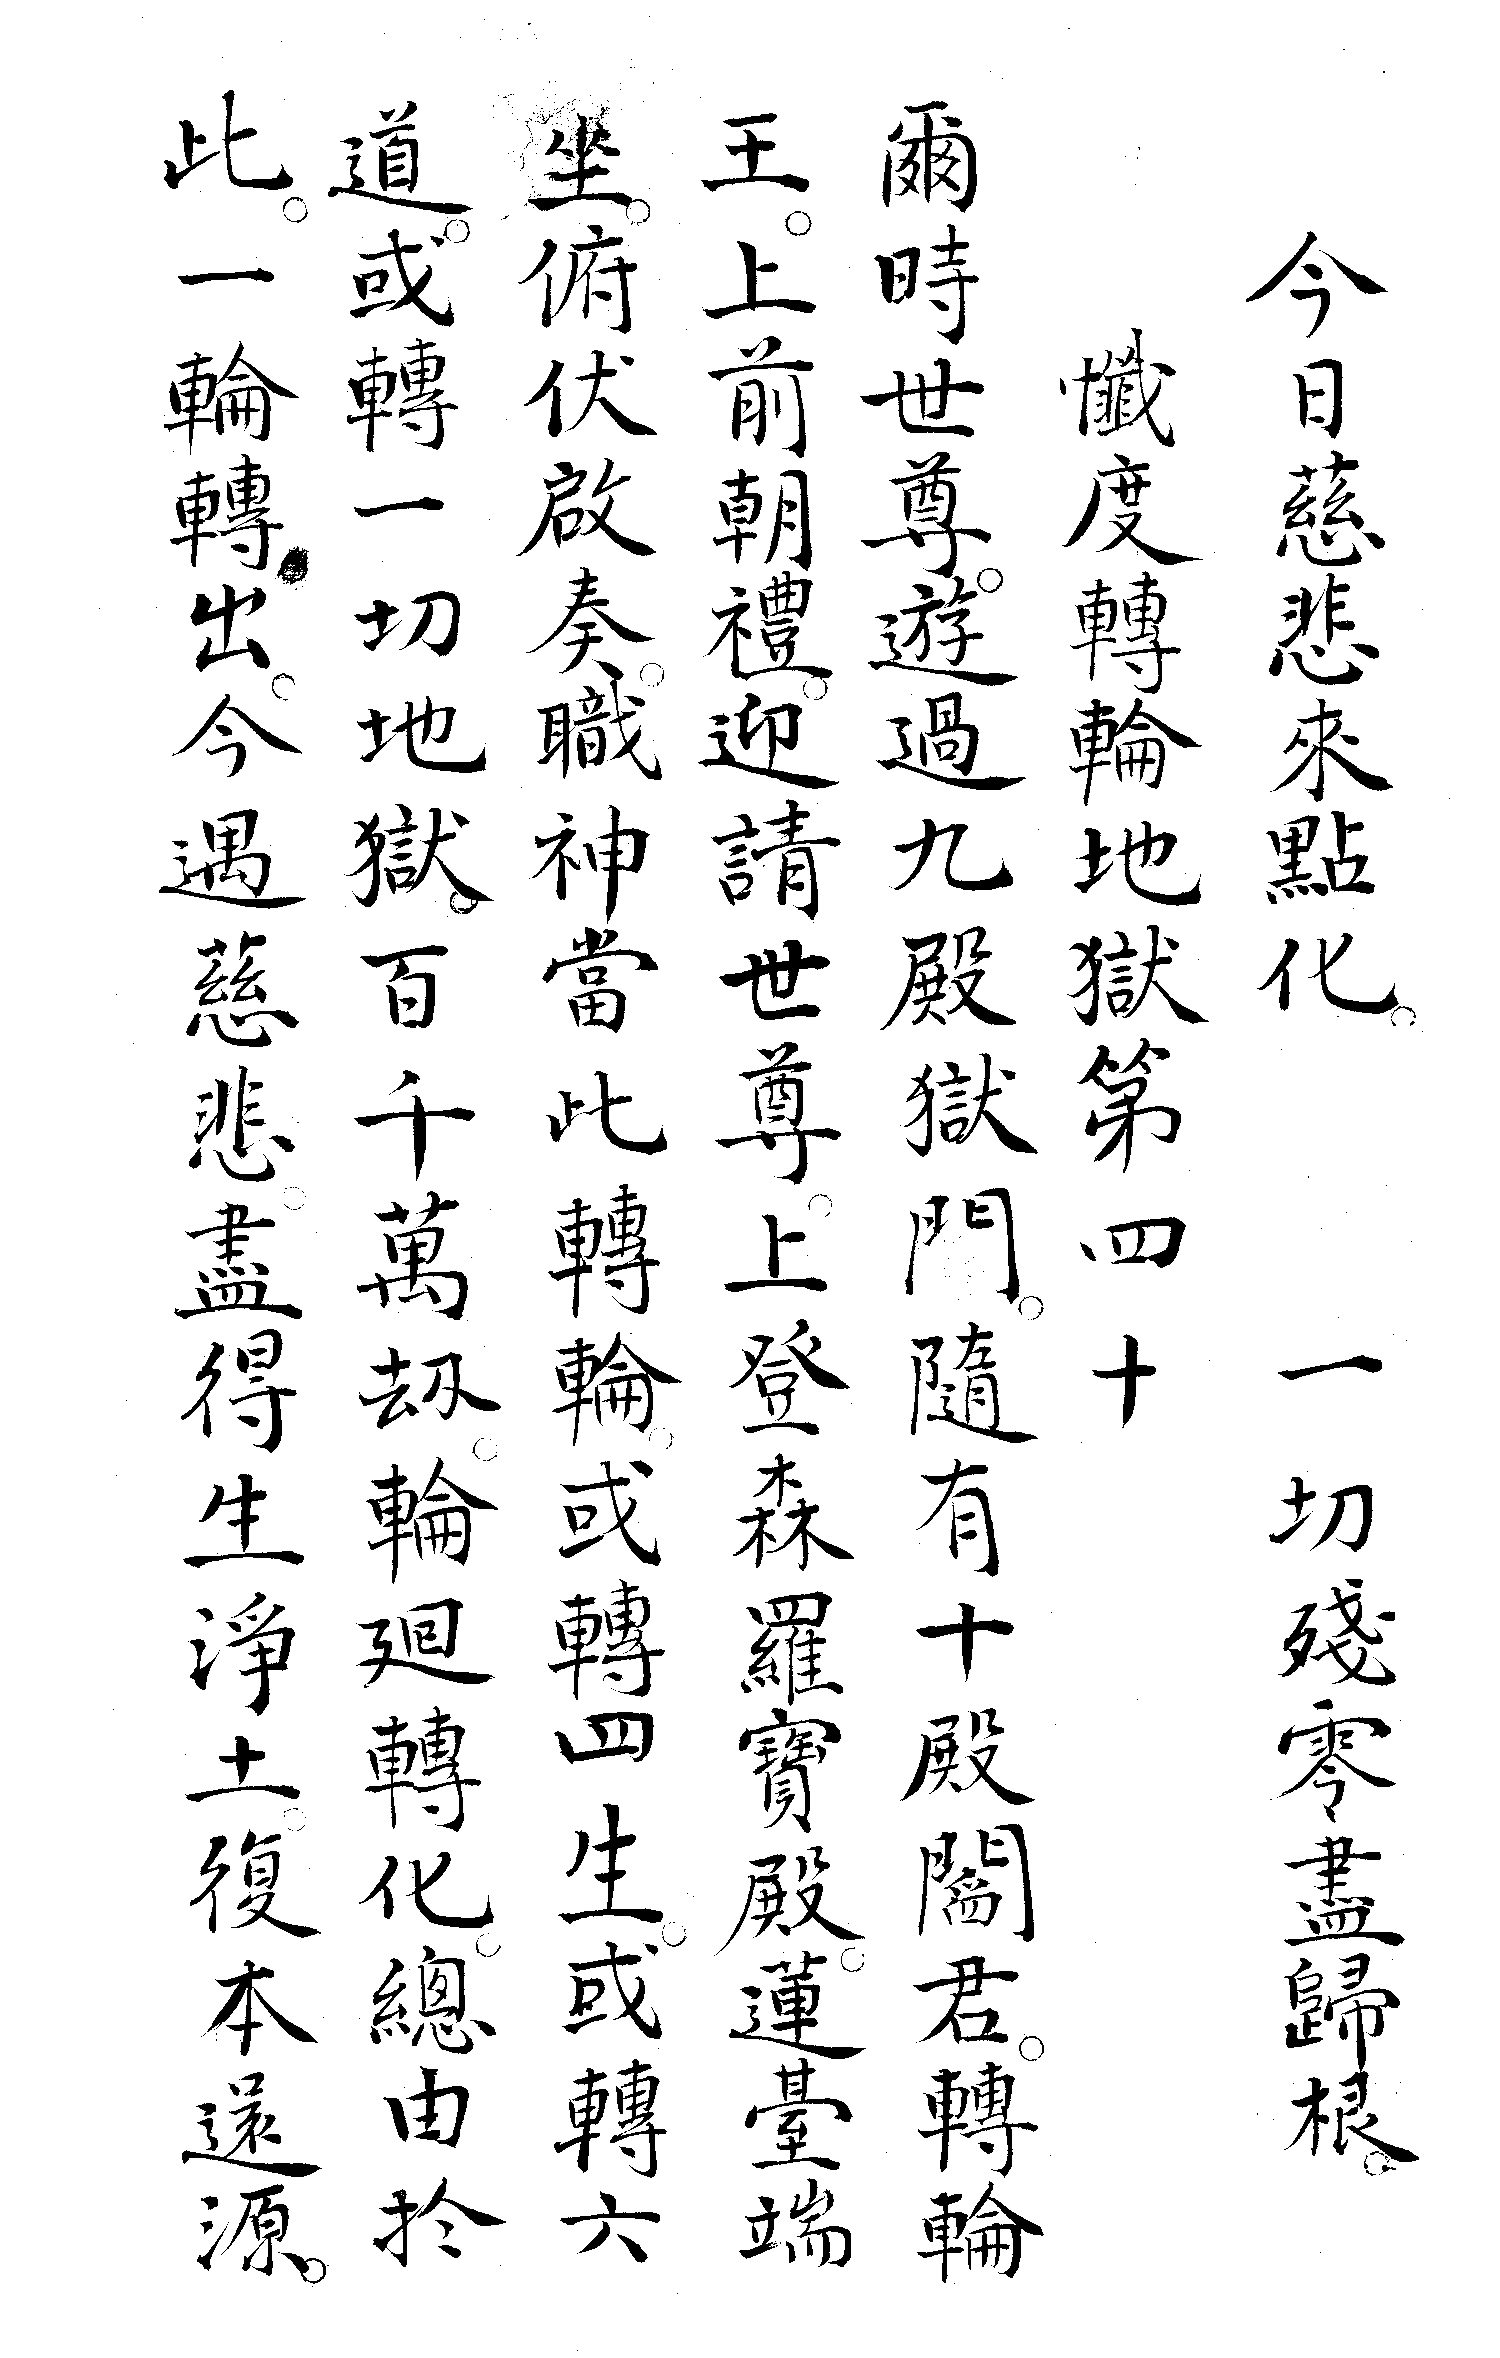 今日慈悲來點化。 一切殘零盡歸根。
懺度轉輪地獄第四十
爾時世尊。遊過九殿獄門。隨有十殿閻君。轉輪
王。上前朝禮。迎請世尊。上登森羅寶殿。蓮臺端
坐。俯伏啟奏。職神當此轉輪。或轉四生。或轉六
道。或轉一切地獄。百千萬刼。輪廻轉化。總由於
此。一輪轉出。今遇慈悲。盡得生淨土。復本還源。